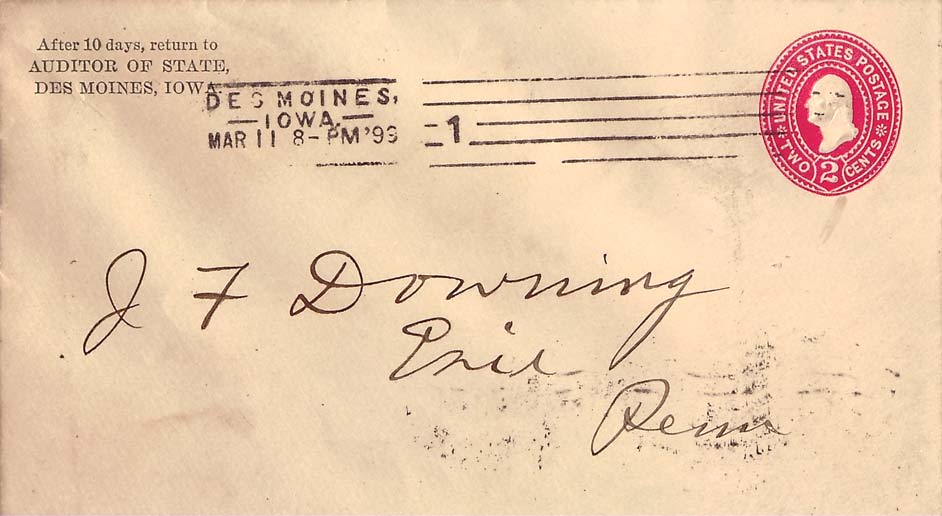 After 10 days, return to
AUDITOR OF STATE,
DES MOINES, IOWA.
DES MOINES,
IOWA.
MAR 11 8-PM '99
1
UNITED STATES POSTAGE
TWO 2 CENTS
J F Downing
Erie
Penn